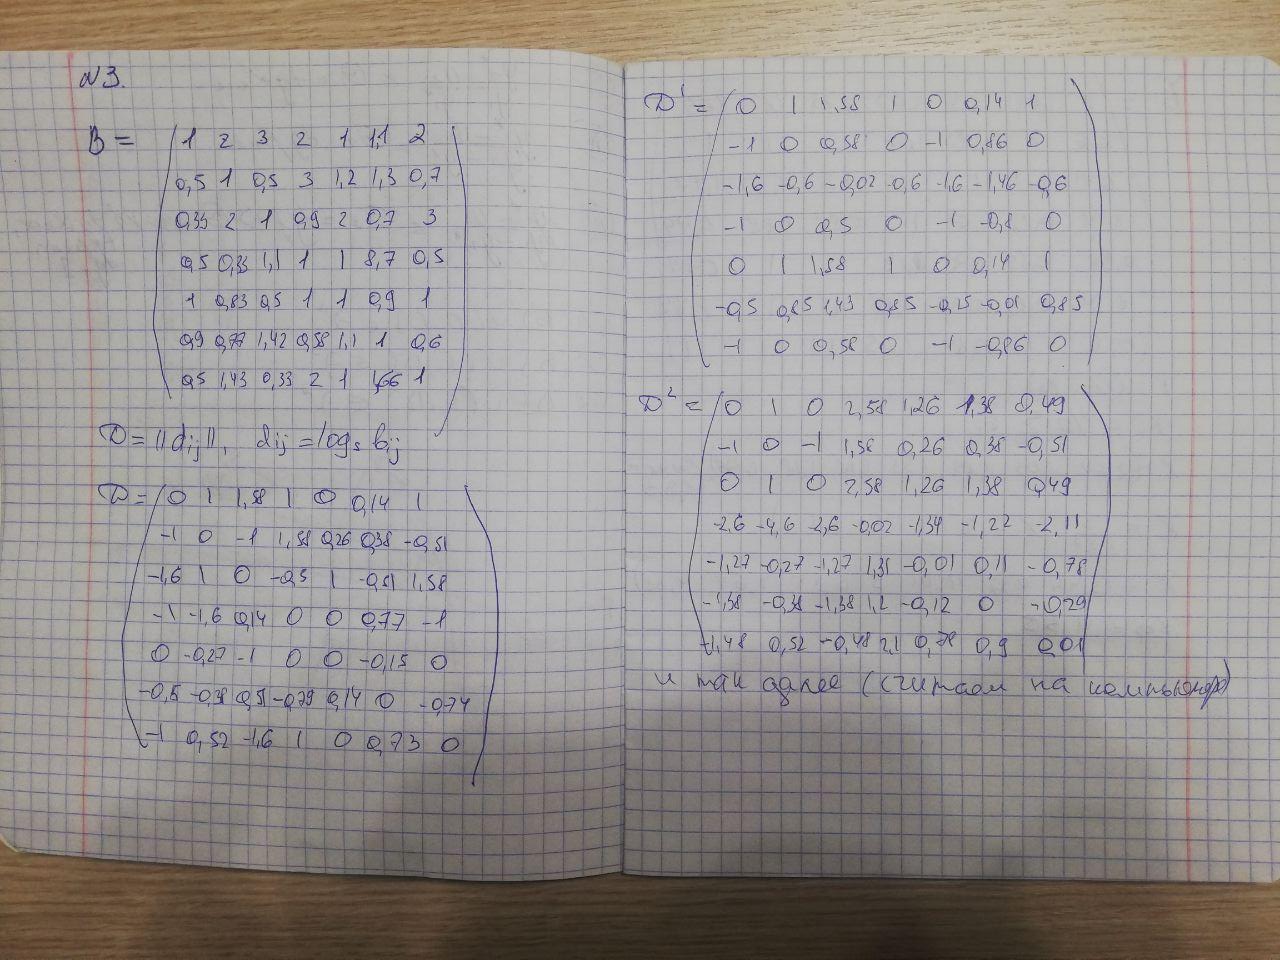 №3.
B = 1 2 3 2 1 1,1 2
0,5 1 0,5 3 1,2 1,3 0,7
0,33 2 1 0,9 2 0,7 3
0,5 0,33 1,1 1 1 8,7 0,5
1 0,83 0,5 1 1 0,9 1
0,9 0,77 1,42 0,58 1,1 1 0,6
0,5 1,43 0,33 2 1 1,66 1
D = ||dij||, dij = log₂ bij
D = 0 1 1,58 1 0 0,14 1
-1 0 -1 1,58 0,26 0,38 -0,51
-1,6 1 0 -0,5 1 -0,51 1,58
-1 -1,6 0,14 0 0 0,77 -1
0 -0,27 -1 0 0 -0,15 0
-0,5 -0,38 0,51 -0,79 0,14 0 -0,74
-1 0,52 -1,6 1 0 0,73 0
D¹ = 0 1 1,58 1 0 0,14 1
-1 0 0,58 0 -1 0,86 0
-1,6 -0,6 -0,02 -0,6 -1,6 -1,46 -0,6
-1 0 0,5 0 -1 -0,8 0
0 1 1,58 1 0 0,14 1
-0,5 0,85 1,43 0,85 -0,15 -0,01 0,85
-1 0 0,58 0 -1 -0,86 0
D² = 0 1 0 2,58 1,26 1,38 0,49
-1 0 -1 1,58 0,26 0,38 -0,51
0 1 0 2,58 1,26 1,38 0,49
-2,6 -4,6 -2,6 -0,02 -1,34 -1,22 -2,11
-1,27 -0,27 -1,27 1,31 -0,01 0,11 -0,78
-1,38 -0,38 -1,38 1,2 -0,12 0 -0,29
-1,48 0,52 -0,48 2,1 0,78 0,9 0,01
и так далее (считаем на компьютере)